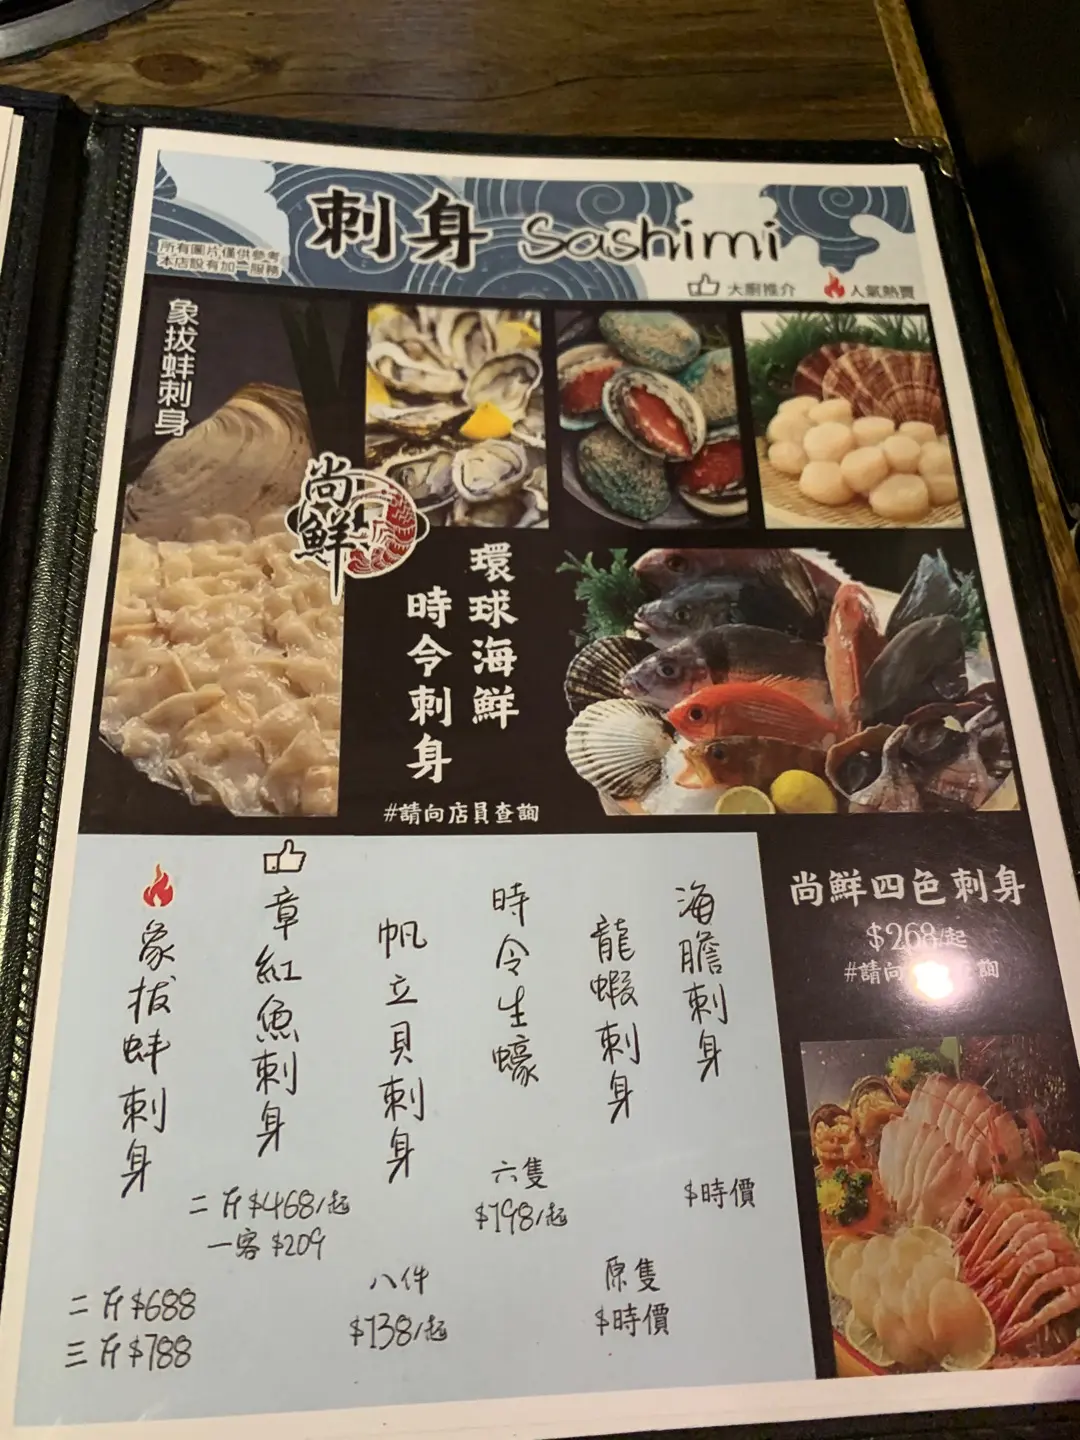 刺身 Sashimi
所有圖片僅供參考
本店設有加一服務
大廚推介
人氣熱賣
象拔蚌刺身
尚鮮
環球海鮮
時令刺身
#請向店員查詢
尚鮮四色刺身
$268/起
#請向
詢
海膽刺身
$時價
龍蝦刺身
原隻
$時價
時令生蠔
六隻
$198/起
帆立貝刺身
八件
$138/起
章紅魚刺身
二斤$468/起
一客 $209
象拔蚌刺身
二斤$688
三斤$788